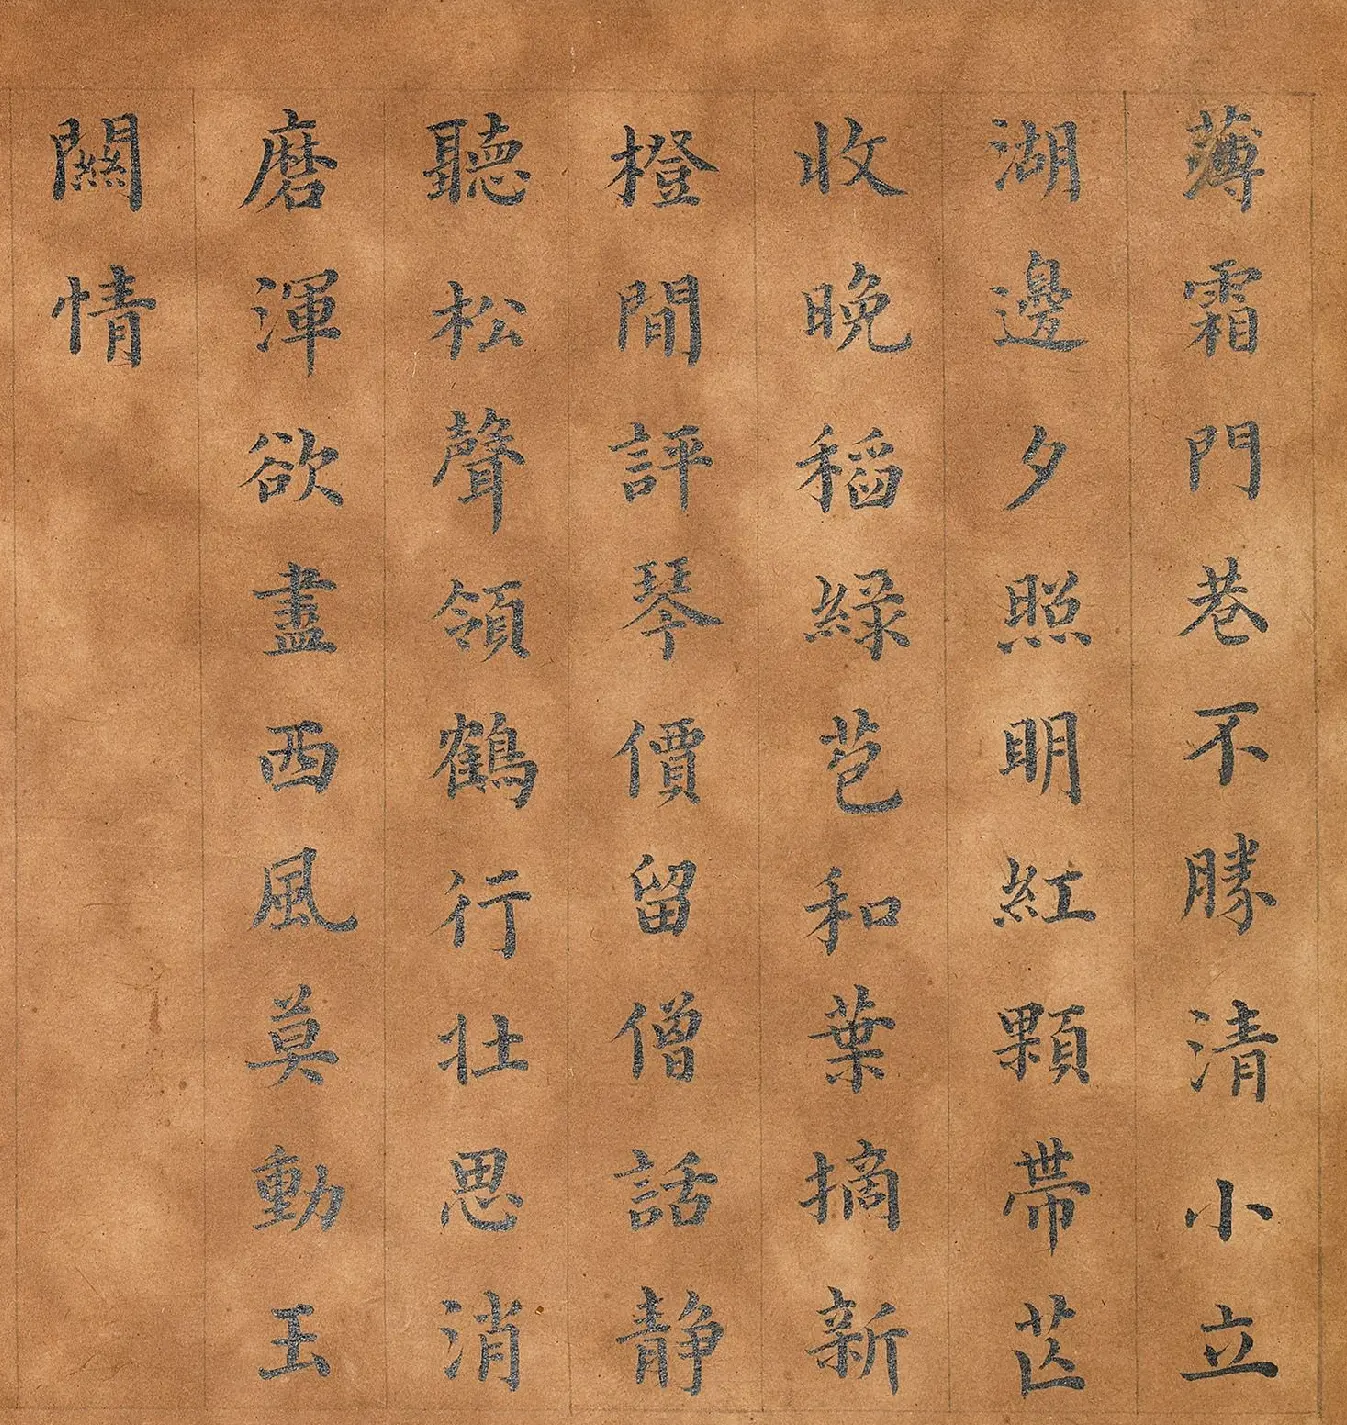 薄霜門巷不勝清小立
湖邊夕照明紅顆帶芒
收晚稻緑苞和葉摘新
橙閒評琴價留僧話静
聽松聲領鶴行壯思消
磨渾欲盡西風莫動玉
關情